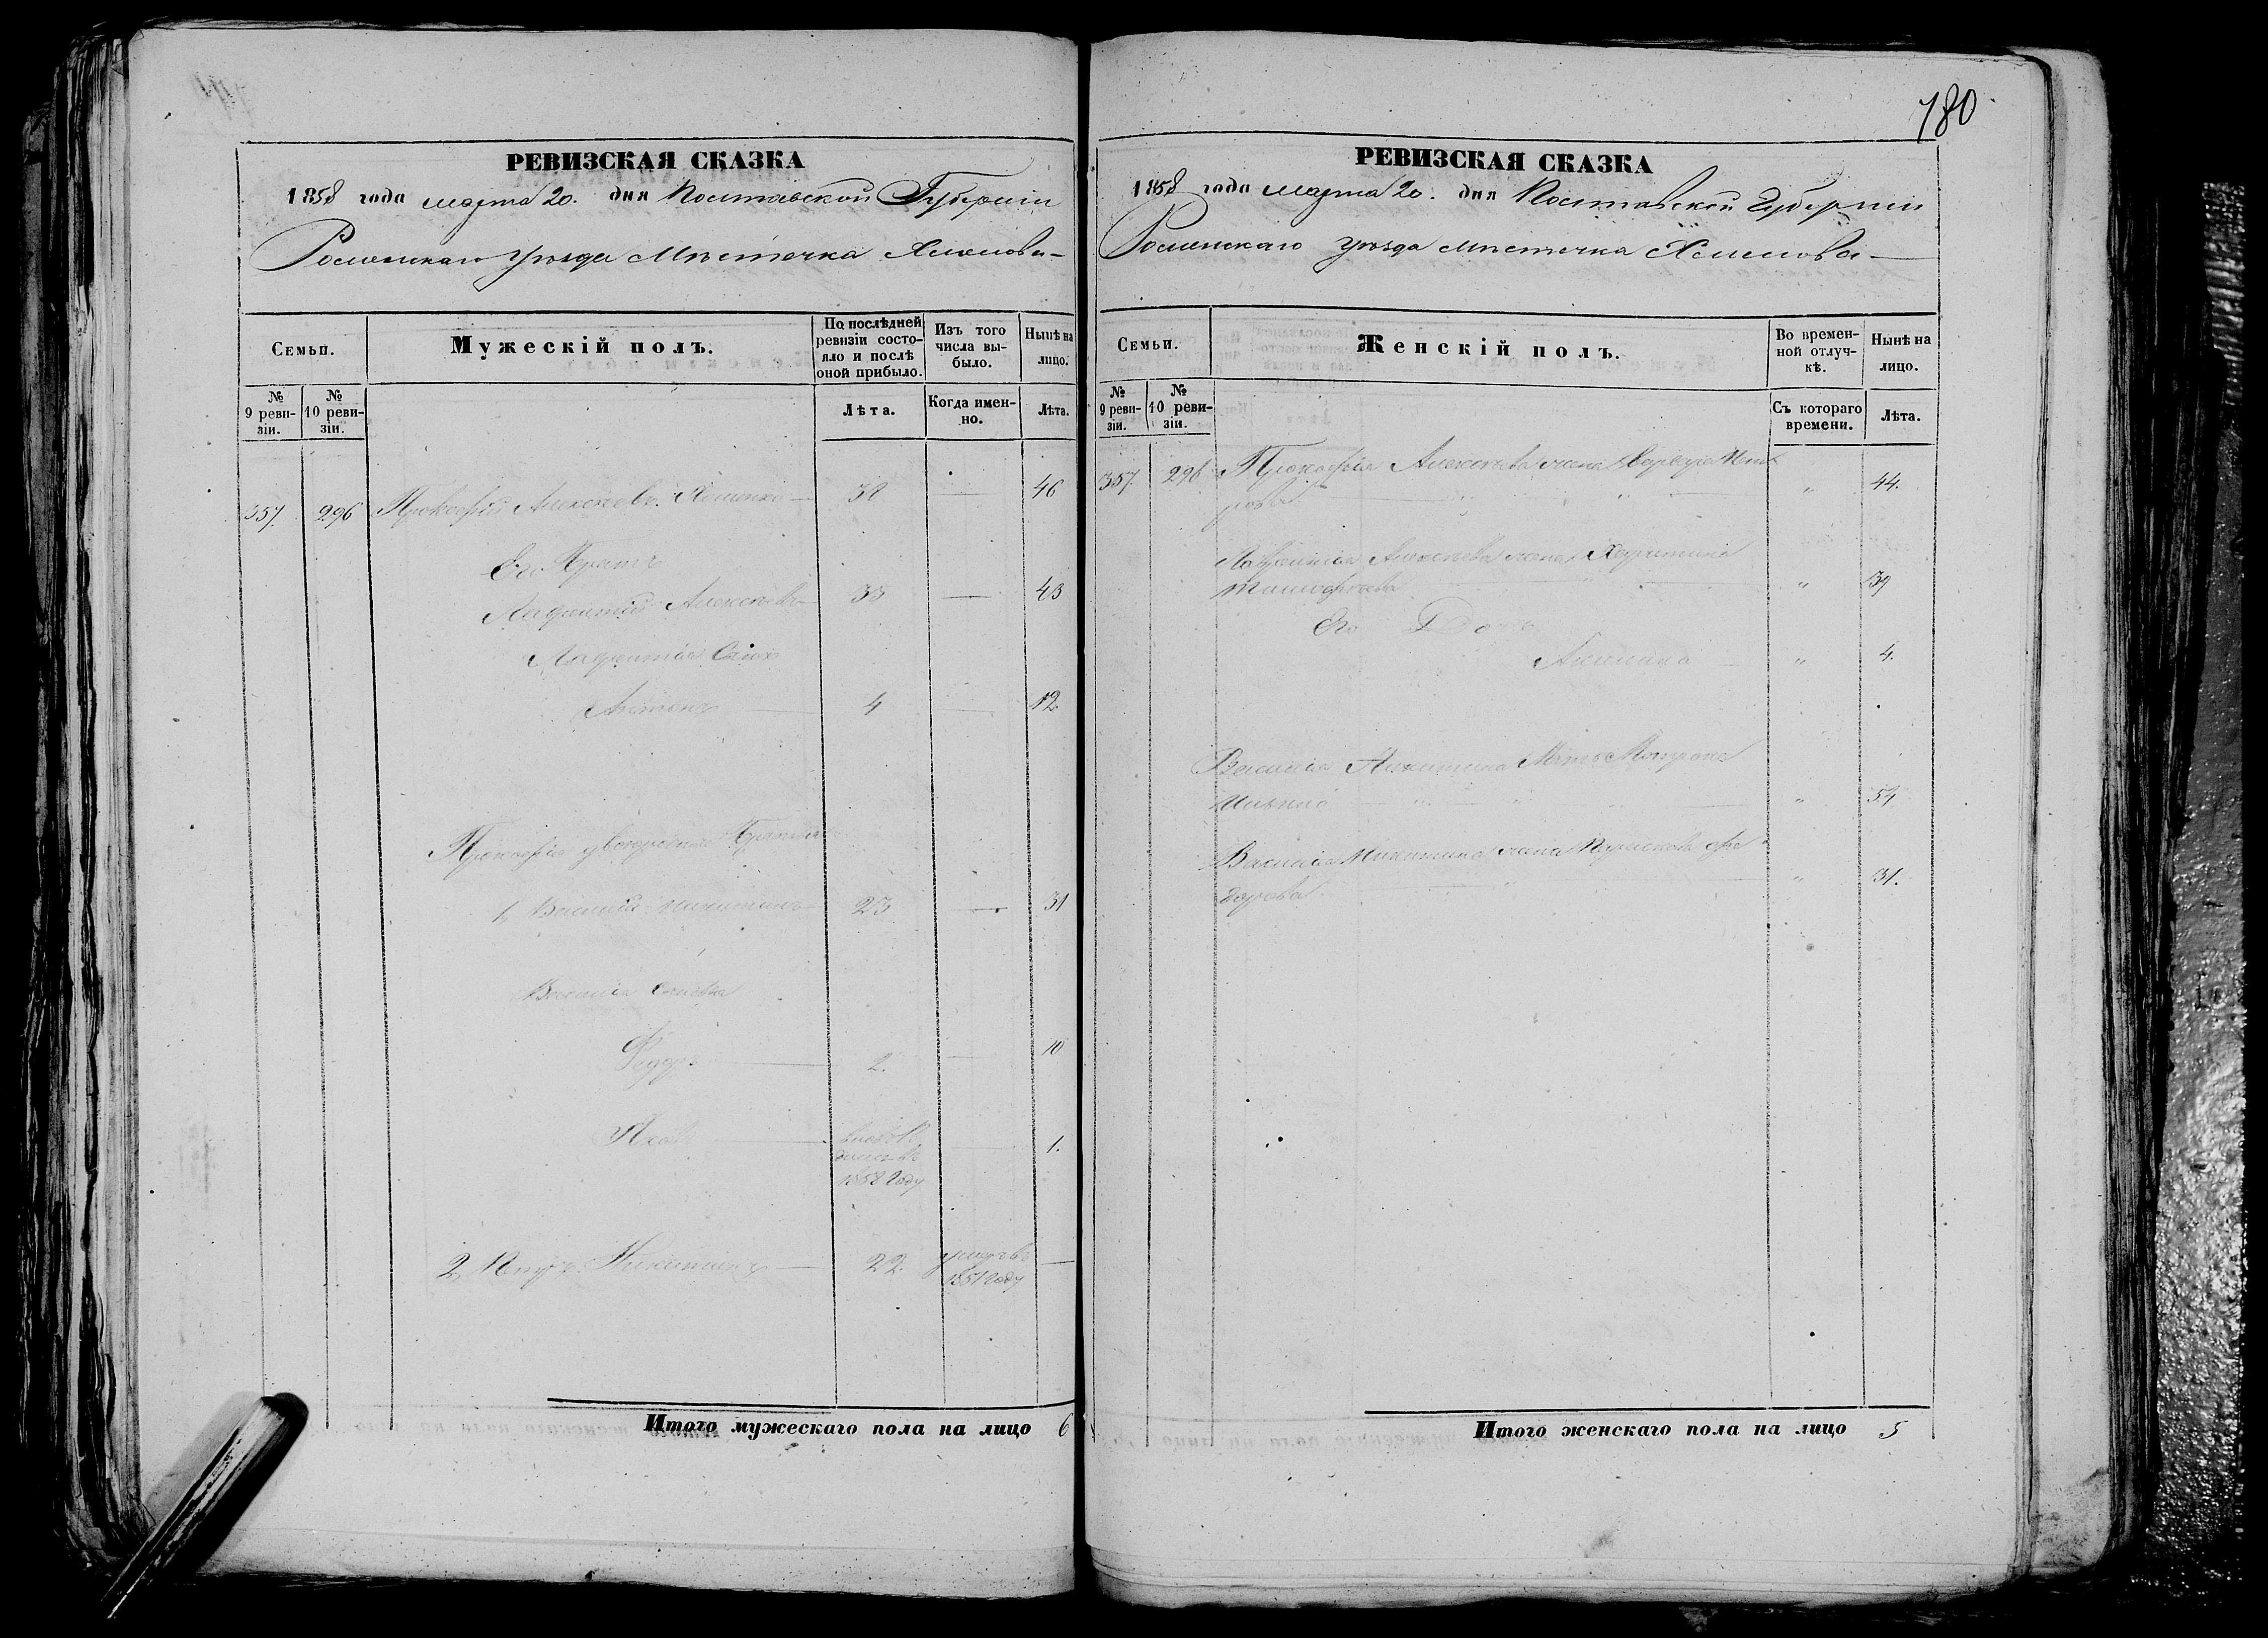 180
РЕВИЗСКАЯ СКАЗКА
1858 года марта 20. дня Полтавской Губерніи
Роменскаго уѣзда Мѣстечка Хмелова
Семьи.
Мужескій полъ.
По послѣдней ревизіи состояло и послѣ оной прибыло.
Изъ того числа выбыло.
Нынѣ на лицо.
№ 9 ревизіи.
№ 10 ревизіи.
Лѣта.
Когда именно.
Лѣта.
357. 296 Прокофій Алексѣевъ 38 — 46
Его Братъ
Лаврентій Алексѣевъ 35 — 43
Лаврентія Сынъ
Антонъ 4 — 12.
Прокофія двоюродные Братья
1, Василій Никитинъ 23. — 31
Василія Сыновья
Федоръ 2. — 10
Яковъ — 1.
1858 году
2, Петръ Никитинъ 22. умеръ въ —
1851 году
Итого мужескаго пола на лицо 6
РЕВИЗСКАЯ СКАЗКА
1858 года марта 20. дня Полтавской Губерніи
Роменскаго уѣзда мѣстечка Хмелова
Семьи.
Женскій полъ.
Во временной отлучкѣ.
Нынѣ на лицо.
№ 9 ревизіи.
№ 10 ревизіи.
Съ котораго времени.
Лѣта.
357. 296 Прокофія Алексѣева жена
" 44.
Лаврентія Алексѣева жена Харитина
Тимофѣева " 39
Его Дочь
Акилина " 4.
Василія Никитина Мать Матрона
" 54
Василія Никитина жена Парасковія Фе-
дорова " 31.
Итого женскаго пола на лицо 5